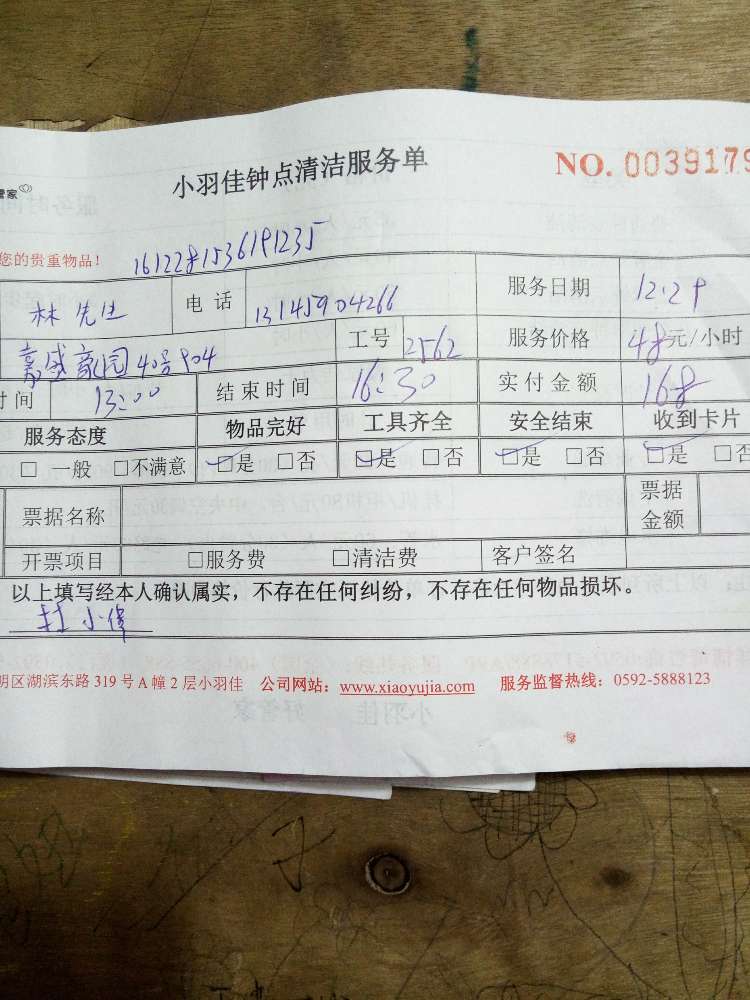 管家
小羽佳钟点清洁服务单
NO. 0039179
您的贵重物品！
1612281536191235
林先生 电话 13145904266 服务日期 12.29
嘉盛豪园40号904 工号 2562 服务价格 48元/小时
时间 13:00 结束时间 16:30 实付金额 168
服务态度 物品完好 工具齐全 安全结束 收到卡片
□ 一般 □不满意 □是 □否 □是 □否 □是 □否 □是 □
票据名称 票据金额
开票项目 □服务费 □清洁费 客户签名
以上填写经本人确认属实，不存在任何纠纷，不存在任何物品损坏。
小伟
明区湖滨东路 319 号 A 幢 2 层小羽佳 公司网站：www.xiaoyujia.com 服务监督热线：0592-5888123